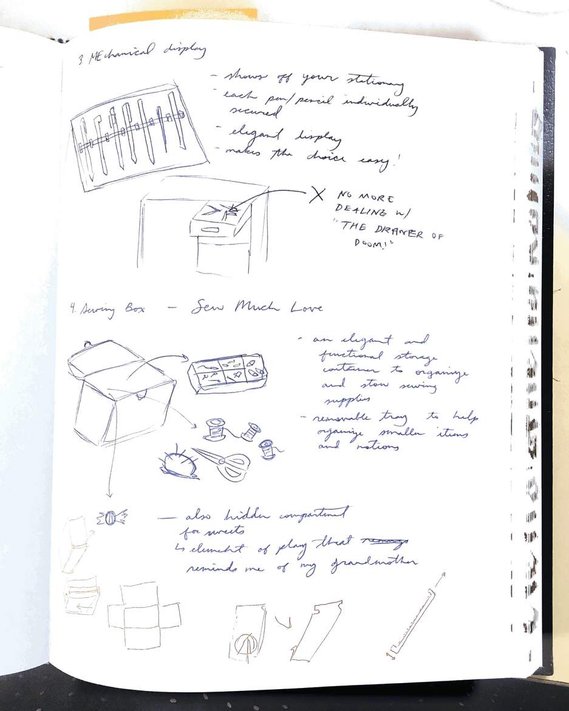 3. MEchanical display
- shows off your stationary
- each pen/pencil individually
secured
- elegant display
- makes the choice easy!
X NO MORE
DEALING W/
"THE DRAWER OF
DOOM!"
4. Sewing Box — Sew Much Love
- an elegant and
functional storage
container to organize
and stow sewing
supplies
- removable tray to help
organize smaller items
and notions
— also hidden compartment
for sweets
↳ element of play that
reminds me of my grandmother